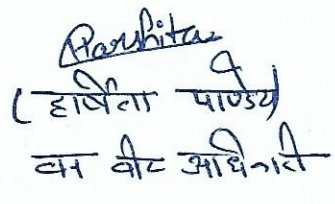 Harshita
(हर्षिता पाण्डेय)
वन बीट अधिकारी